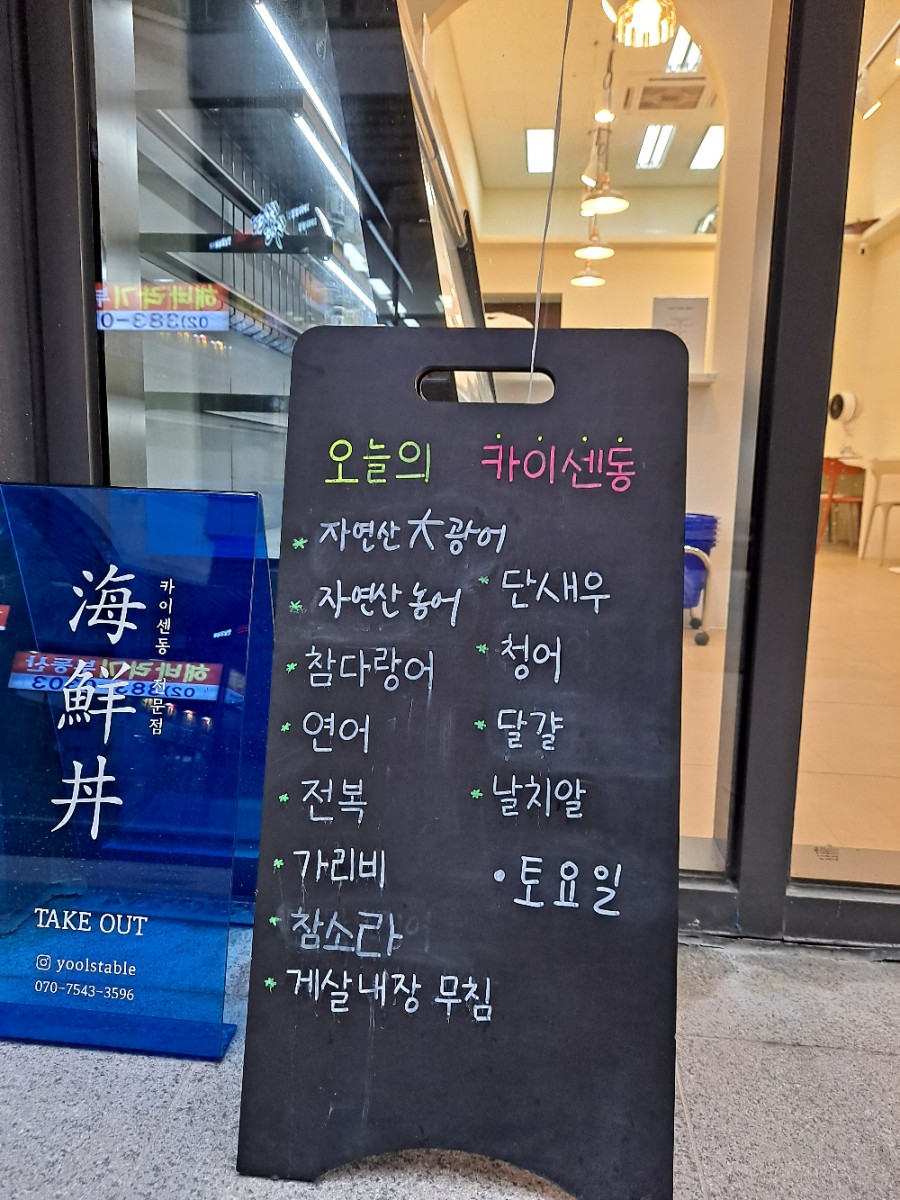 오늘의 카이센동
* 자연산 大광어
* 자연산 농어
* 참다랑어
* 연어
* 전복
* 가리비
* 참소라
* 게살내장 무침
* 단새우
* 청어
* 달걀
* 날치알
• 토요일
海鮮丼
카이센동 전문점
TAKE OUT
yoolstable
070-7543-3596
해바라기부
02)383-0
해바라기부동산